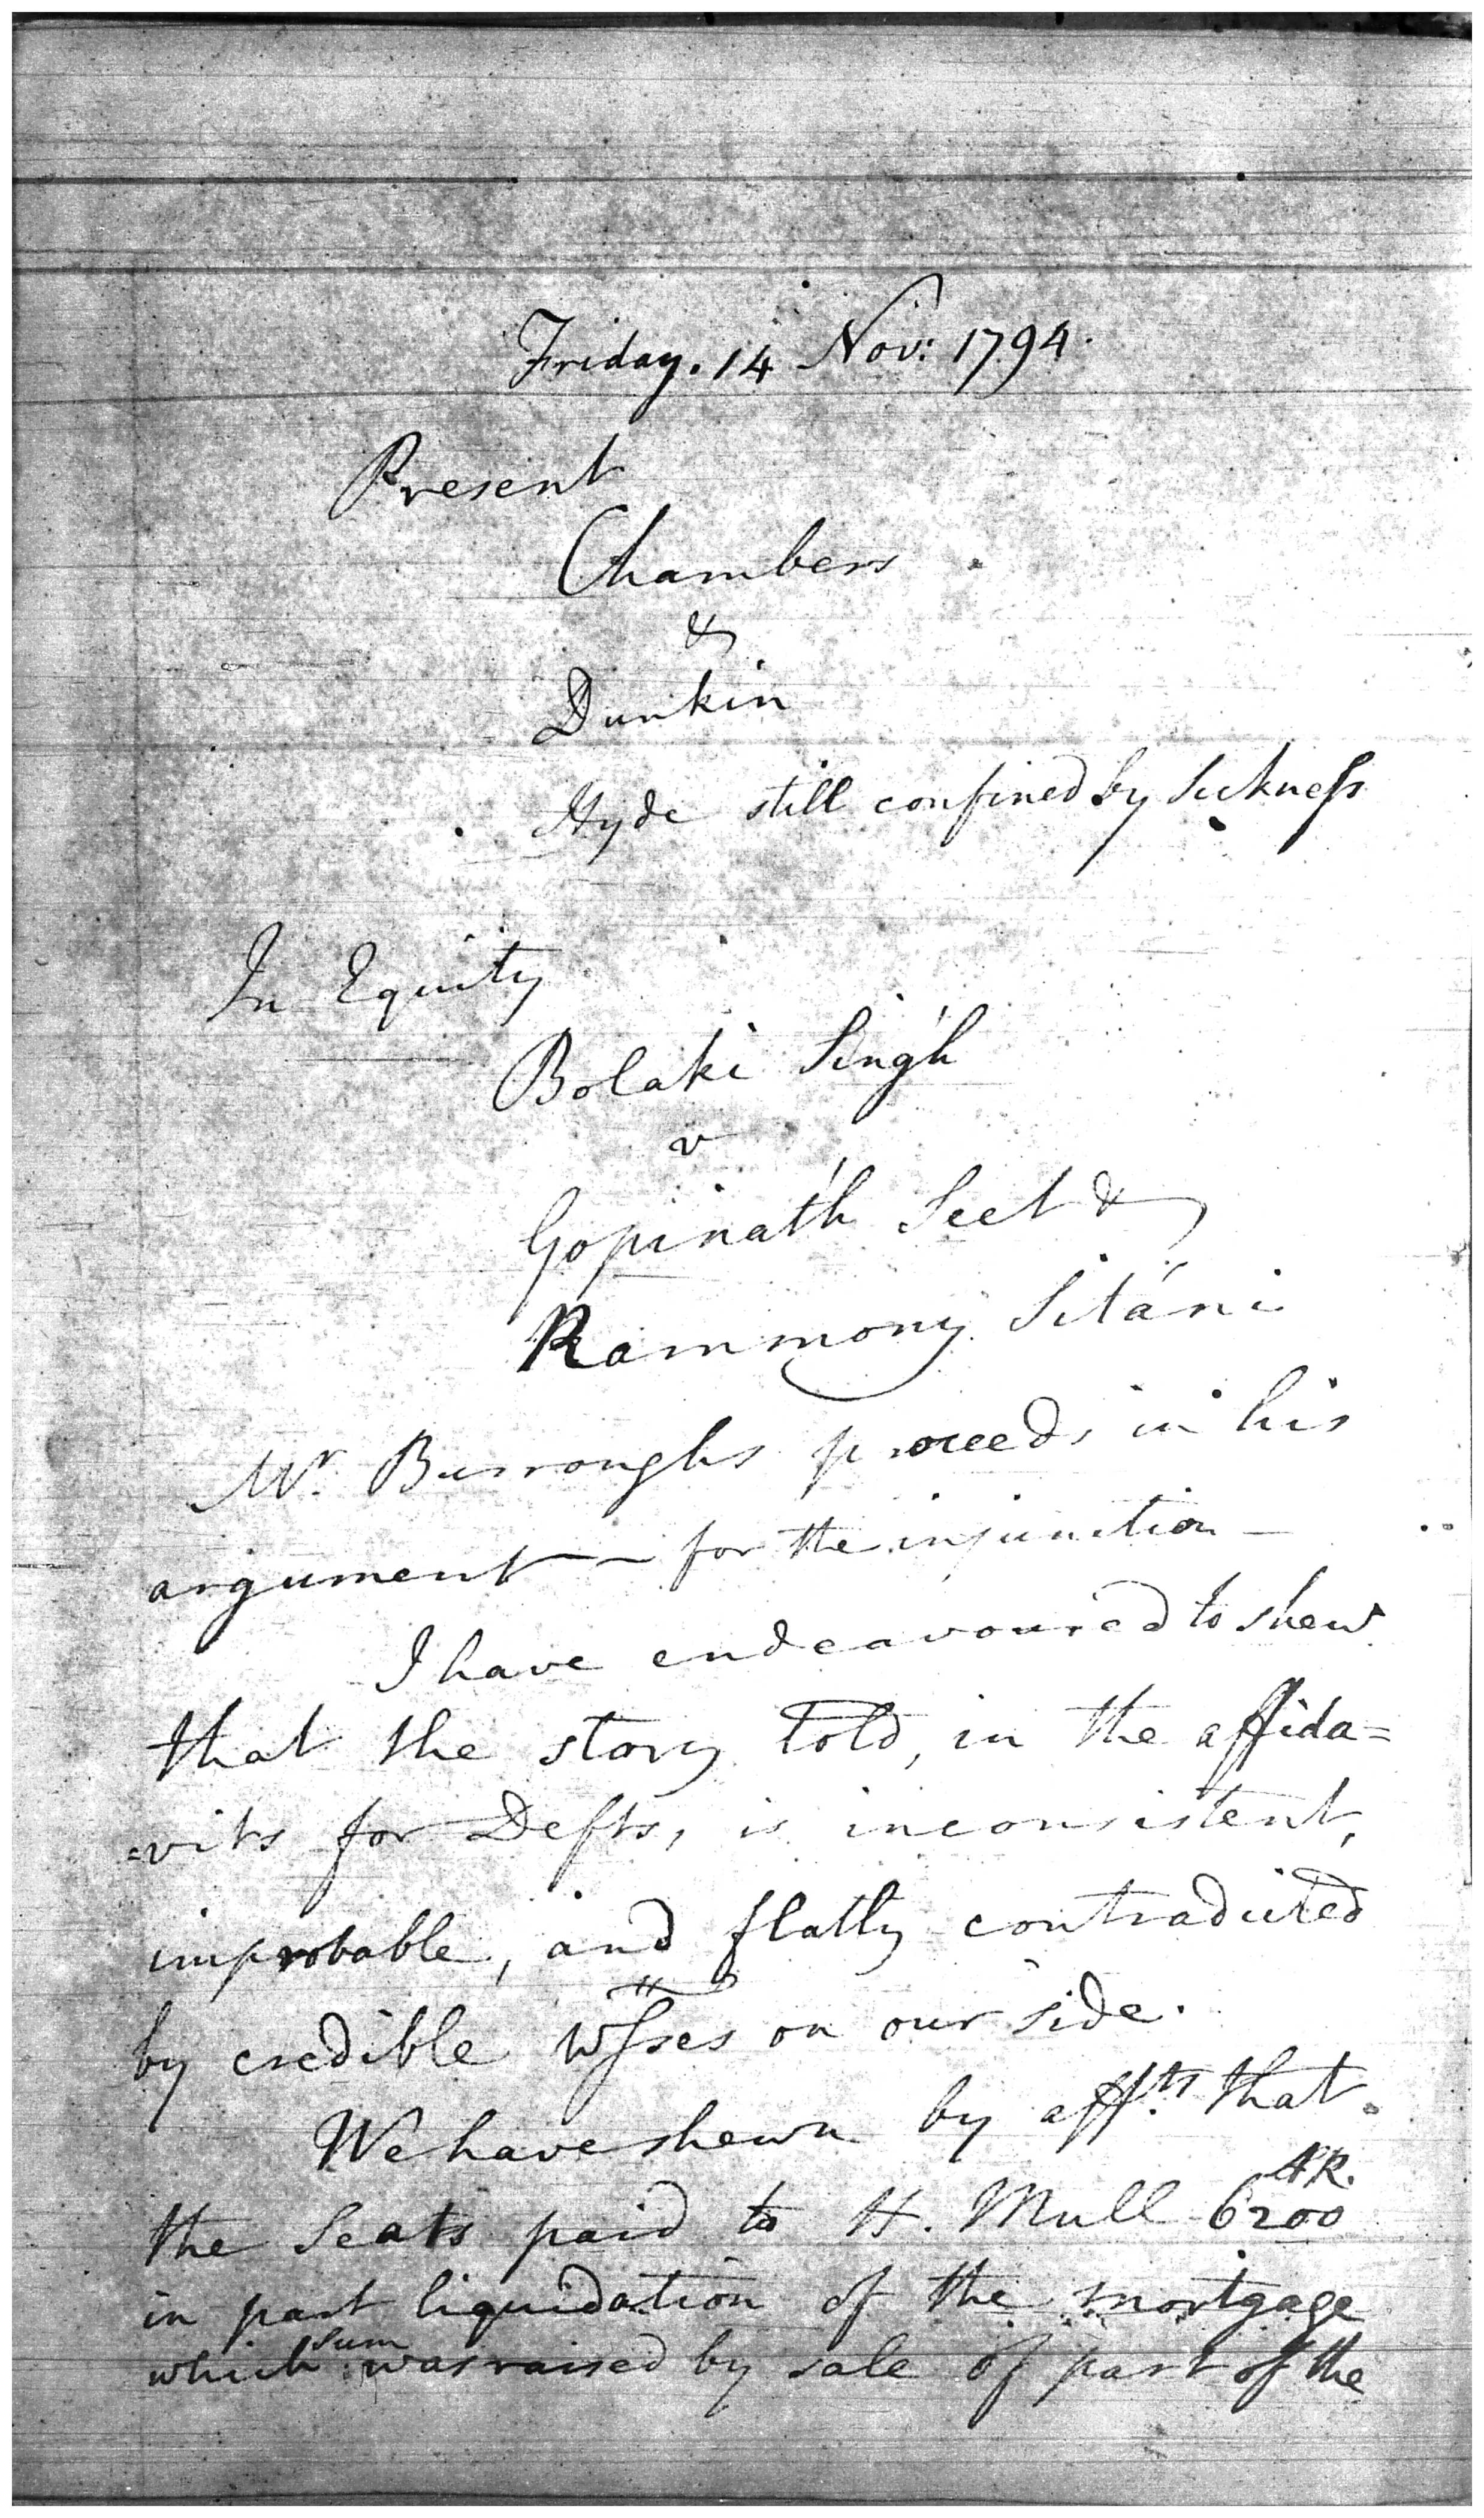 Friday. 14 Nov: 1794.
Present
Chambers
&
Dunkin
Hyde still confined by Sickness
In Equity
Bolaki Singh
v
Gopináth Seet &
Rammony Sitáni
Mr. Burroughs proceeds in his
argument — for the injunction —
I have endeavoured to shew
that the story told, in the affida=
=vits for Defts, is inconsistent,
improbable, and flatly contradicted
by credible Wsses on our side.
We have shewn by affts. that
the Seats paid to H. Mull 6200
in part liquidation of the mortgage
which sum was raised by sale of part of the